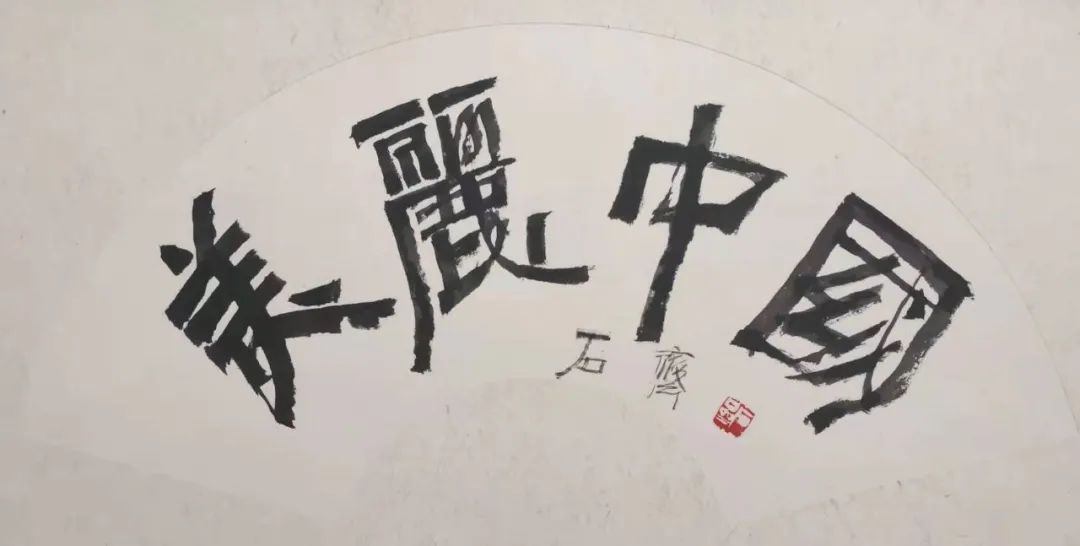 美麗中國
石齊